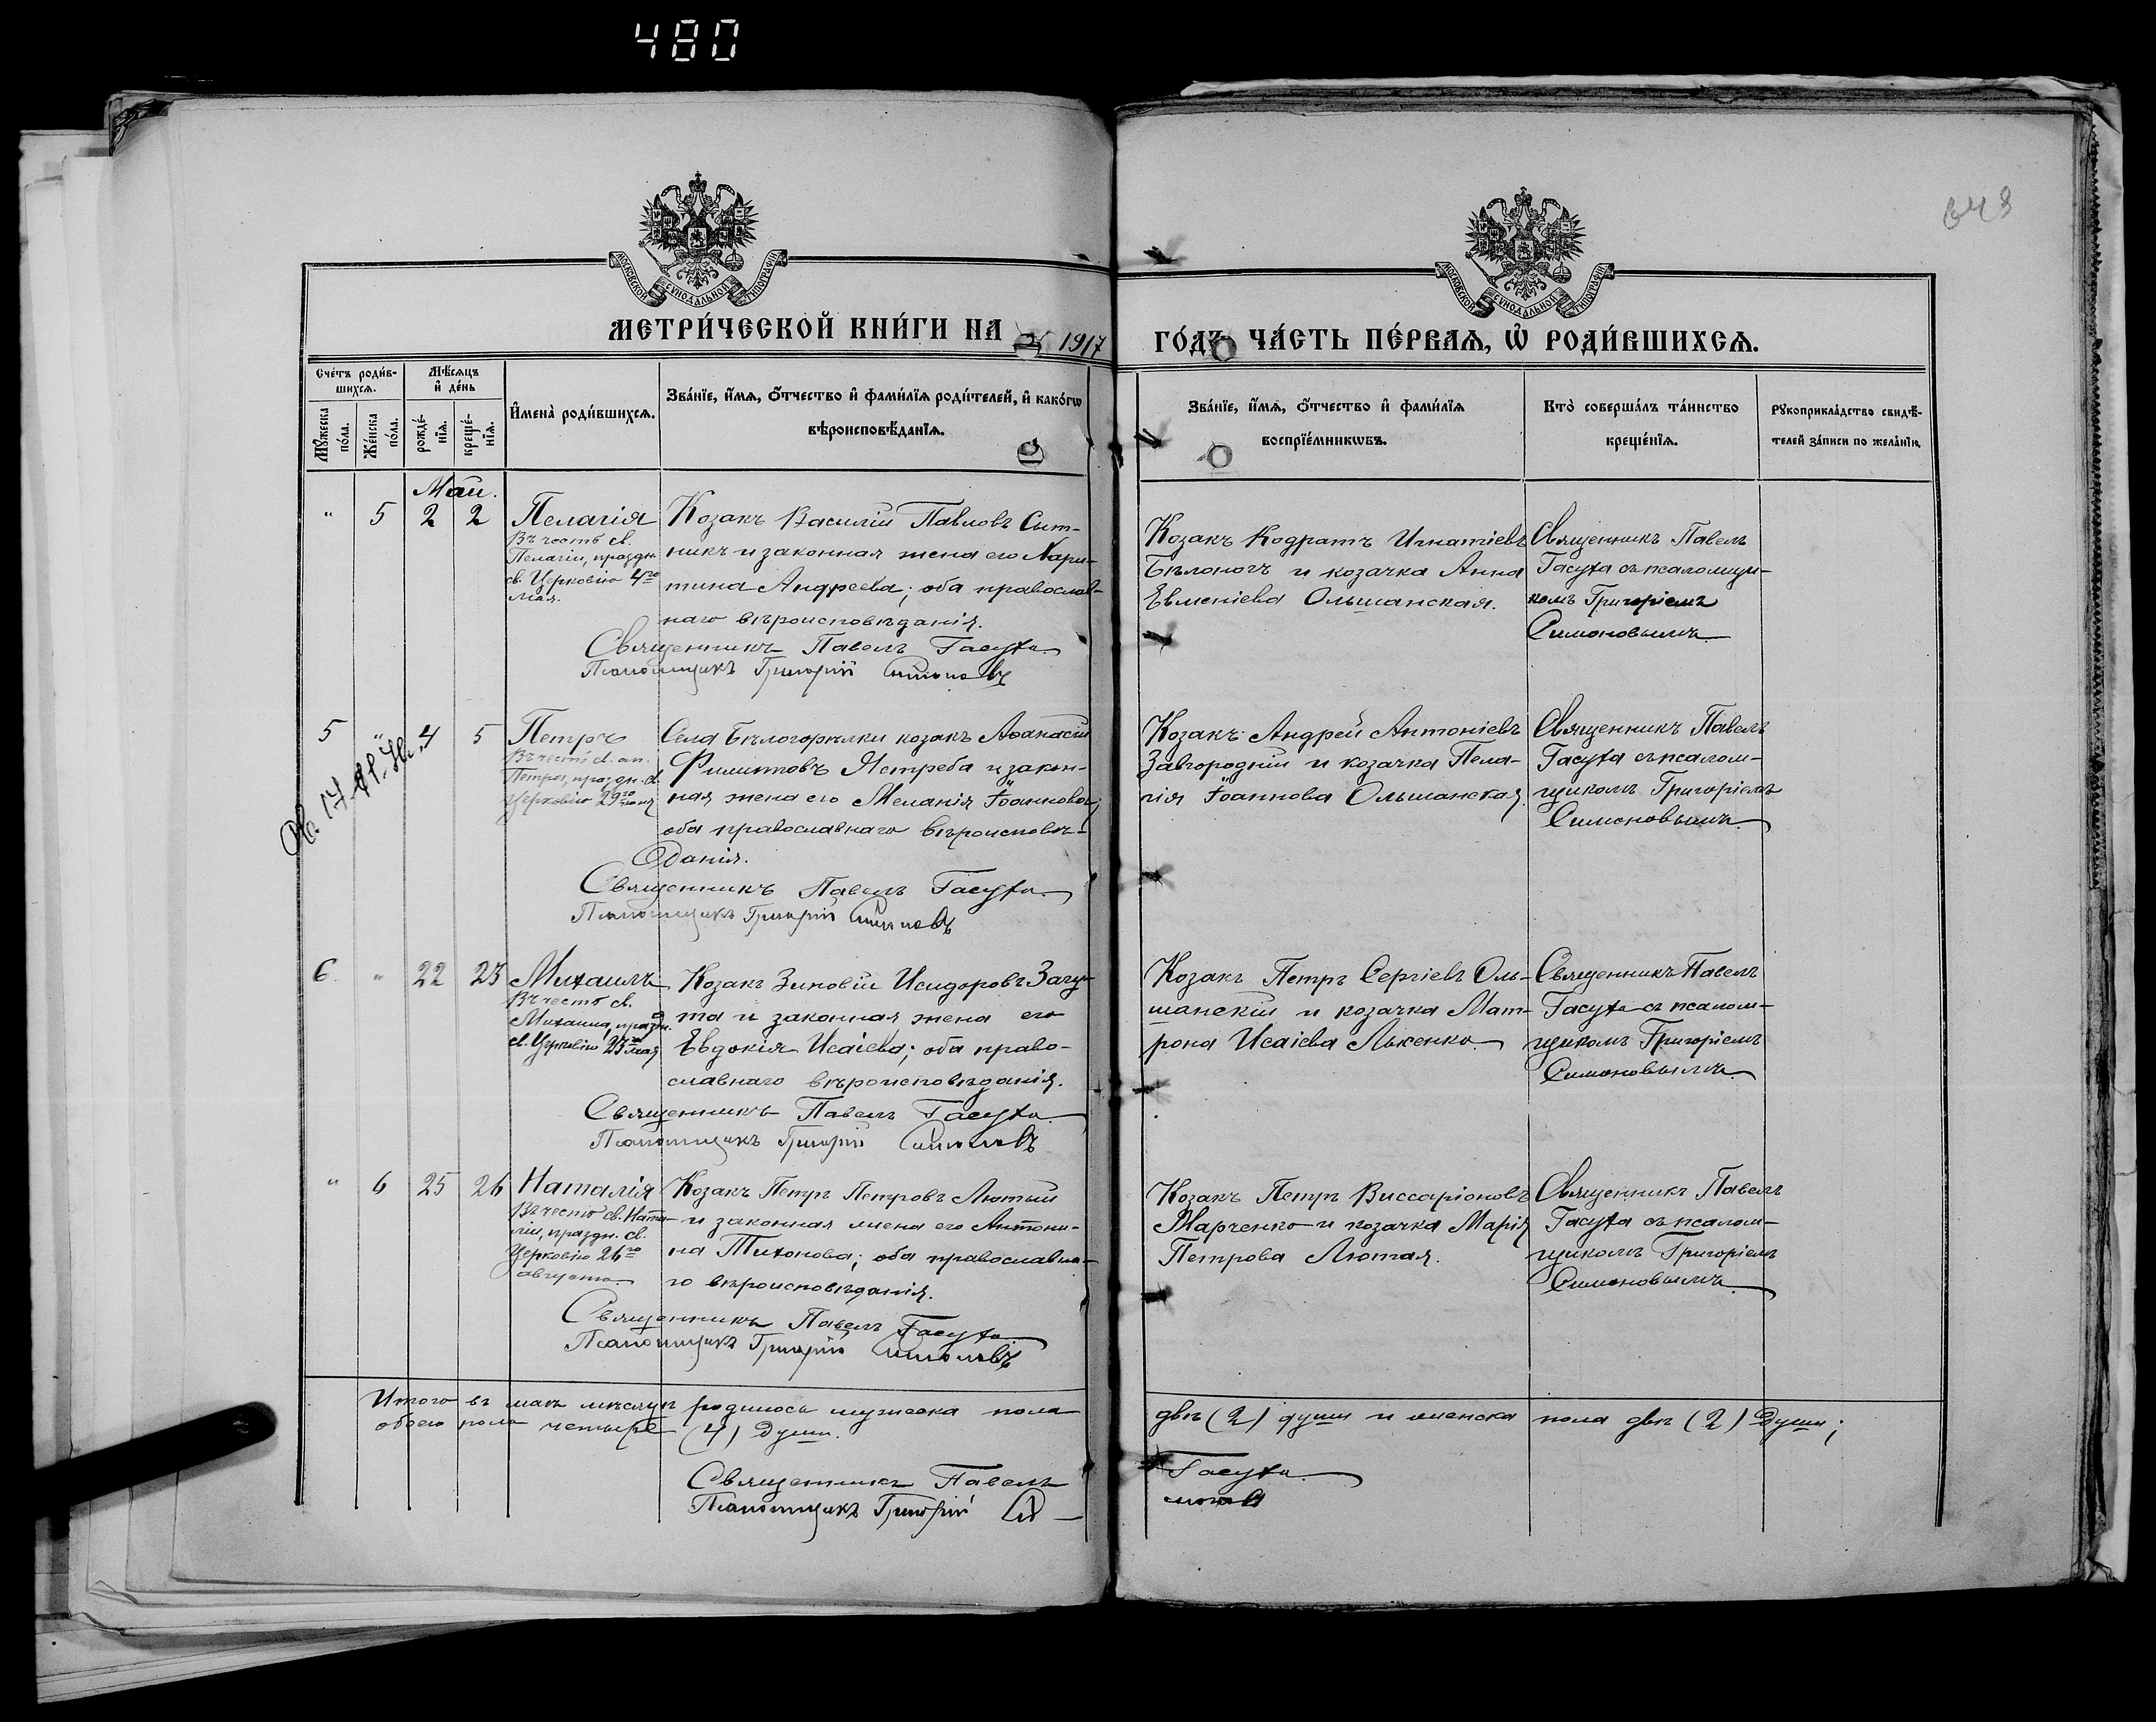 480
648
МОСКОВСКОЙ СѴНОДАЛЬНОЙ ТИПОГРАФІИ
МОСКОВСКОЙ СѴНОДАЛЬНОЙ ТИПОГРАФІИ
МЕТРИ́ЧЕСКОЙ КНИ́ГИ НА 1917
ГО́ДЪ ЧА́СТЬ ПЕ́РВАѦ, Ѡ҆ РОДИ́ВШИХСѦ.
Сче́тъ роди́в-
шихсѧ.
Мѣ́сѧцъ
и҆ де́нь
Мꙋ́жеска
по́ла.
Же́нска
по́ла.
рожде́-
нїѧ.
креще́-
нїѧ.
И҆мена̀ роди́вшихсѧ.
Зва́нїе, и҆́мѧ, ѻ҆́тчество и҆ фами́лїѧ роди́телей, и҆ како́гѡ
вѣроисповѣ́данїѧ.
Зва́нїе, и҆́мѧ, ѻ҆́тчество и҆ фами́лїѧ
воспрїе́мникѡвъ.
Кто̀ соверша́лъ та́инство
креще́нїѧ.
Рꙋкоприкла́дство свидѣ́-
телей за́писи по жела́нїю.
Май.
" 5 2 2 Пелагія
Въ честь св.
Пелагіи, праздн.
св. Церковію 4го
мая.
Козакъ Василій Павловъ Сыт-
никъ и законная жена его Хари-
тина Андреева; оба православ-
наго вѣроисповѣданія.
Священникъ Павелъ Гасуха
Псаломщикъ Григорій Симоновъ
Козакъ Кодратъ Игнатіевъ
Бѣлоногъ и козачка Анна
Евменіева Ольшанская.
Священникъ Павелъ
Гасуха съ псаломщи-
комъ Григоріемъ
Симоновымъ
5 " 4 5 Петръ
Въ честь св. ап.
Петра, праздн. св.
Церковію 29го іюня
Села Бѣлогорѣлки козакъ Аѳанасій
Филиповъ Ястреба и закон-
ная жена его Меланія Іоаннова;
оба православнаго вѣроисповѣ-
данія.
Священникъ Павелъ Гасуха
Псаломщикъ Григорій Симоновъ
Козакъ Андрей Антоніевъ
Завгородній и козачка Пела-
гія Іоаннова Ольшанская.
Священникъ Павелъ
Гасуха съ псалом-
щикомъ Григоріемъ
Симоновымъ
6 " 22 23 Михаилъ
Въ честь св.
Михаила, праздн.
св. Церковію 23го мая
Козакъ Зиновій Исидоровъ Загу-
та и законная жена его
Евдокія Исаіева; оба право-
славнаго вѣроисповѣданія.
Священникъ Павелъ Гасуха
Псаломщикъ Григорій Симоновъ
Козакъ Петръ Сергіевъ Оль-
шанскій и козачка Мат-
рона Исаіева Лысенко
Священникъ Павелъ
Гасуха съ псалом-
щикомъ Григоріемъ
Симоновымъ
" 6 25 26 Наталія
Въ честь св. Ната-
ліи, праздн. св.
Церковію 26го
августа
Козакъ Петръ Петровъ Лютый
и законная жена его Антони-
на Тихонова; оба православна-
го вѣроисповѣданія.
Священникъ Павелъ Гасуха
Псаломщикъ Григорій Симоновъ
Козакъ Петръ Виссаріоновъ
Марченко и козачка Марія
Петрова Лютая.
Священникъ Павелъ
Гасуха съ псалом-
щикомъ Григоріемъ
Симоновымъ
Итого въ маѣ мѣсяцѣ родилось мужеска пола двѣ (2) души и женска пола двѣ (2) души;
обоего пола четыре (4) души.
Священникъ Павелъ Гасуха
Псаломщикъ Григорій Симоновъ